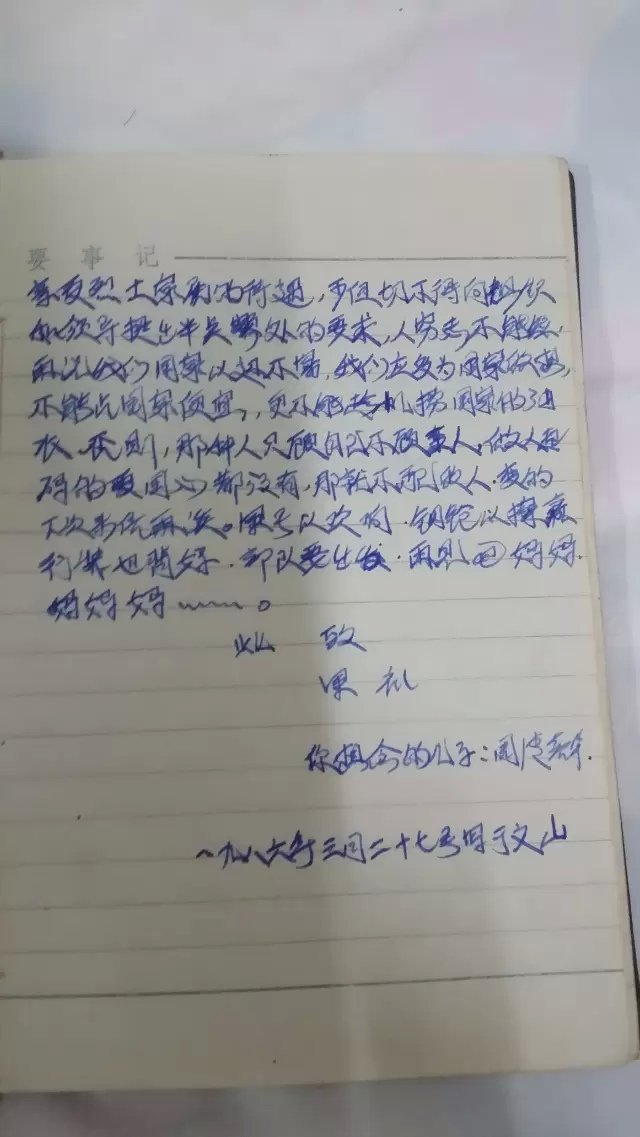 要事记
享受烈士家属的待遇,多但切不得向组织
和领导提出半点额外的要求,人穷志不能短,
再说我们国家以还不富,我们应多为国家做想,
不能占国家便宜,更不能趁机捞国家的油
水,否则,那种人只顾自己不顾家人,做人起
码的爱国心都没有,那就不配做人.
下次来信再谈。军号以吹响,钢枪以擦亮
行装也背好.部队要出发.再见 妈妈.
妈妈妈……。
此致
军礼
你想念的儿子:
一九八六年三月二十七号写于文山